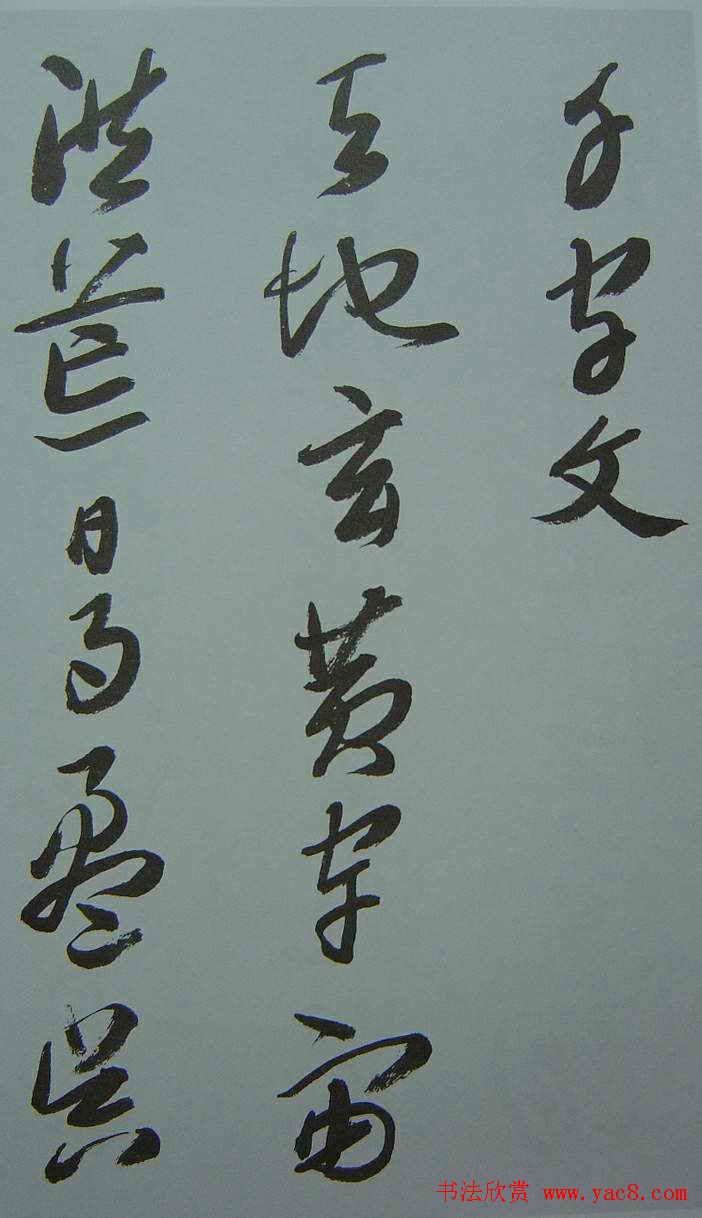 千字文
天地玄黄宇宙
洪荒日月盈昃
书法欣赏 www.yac8.com